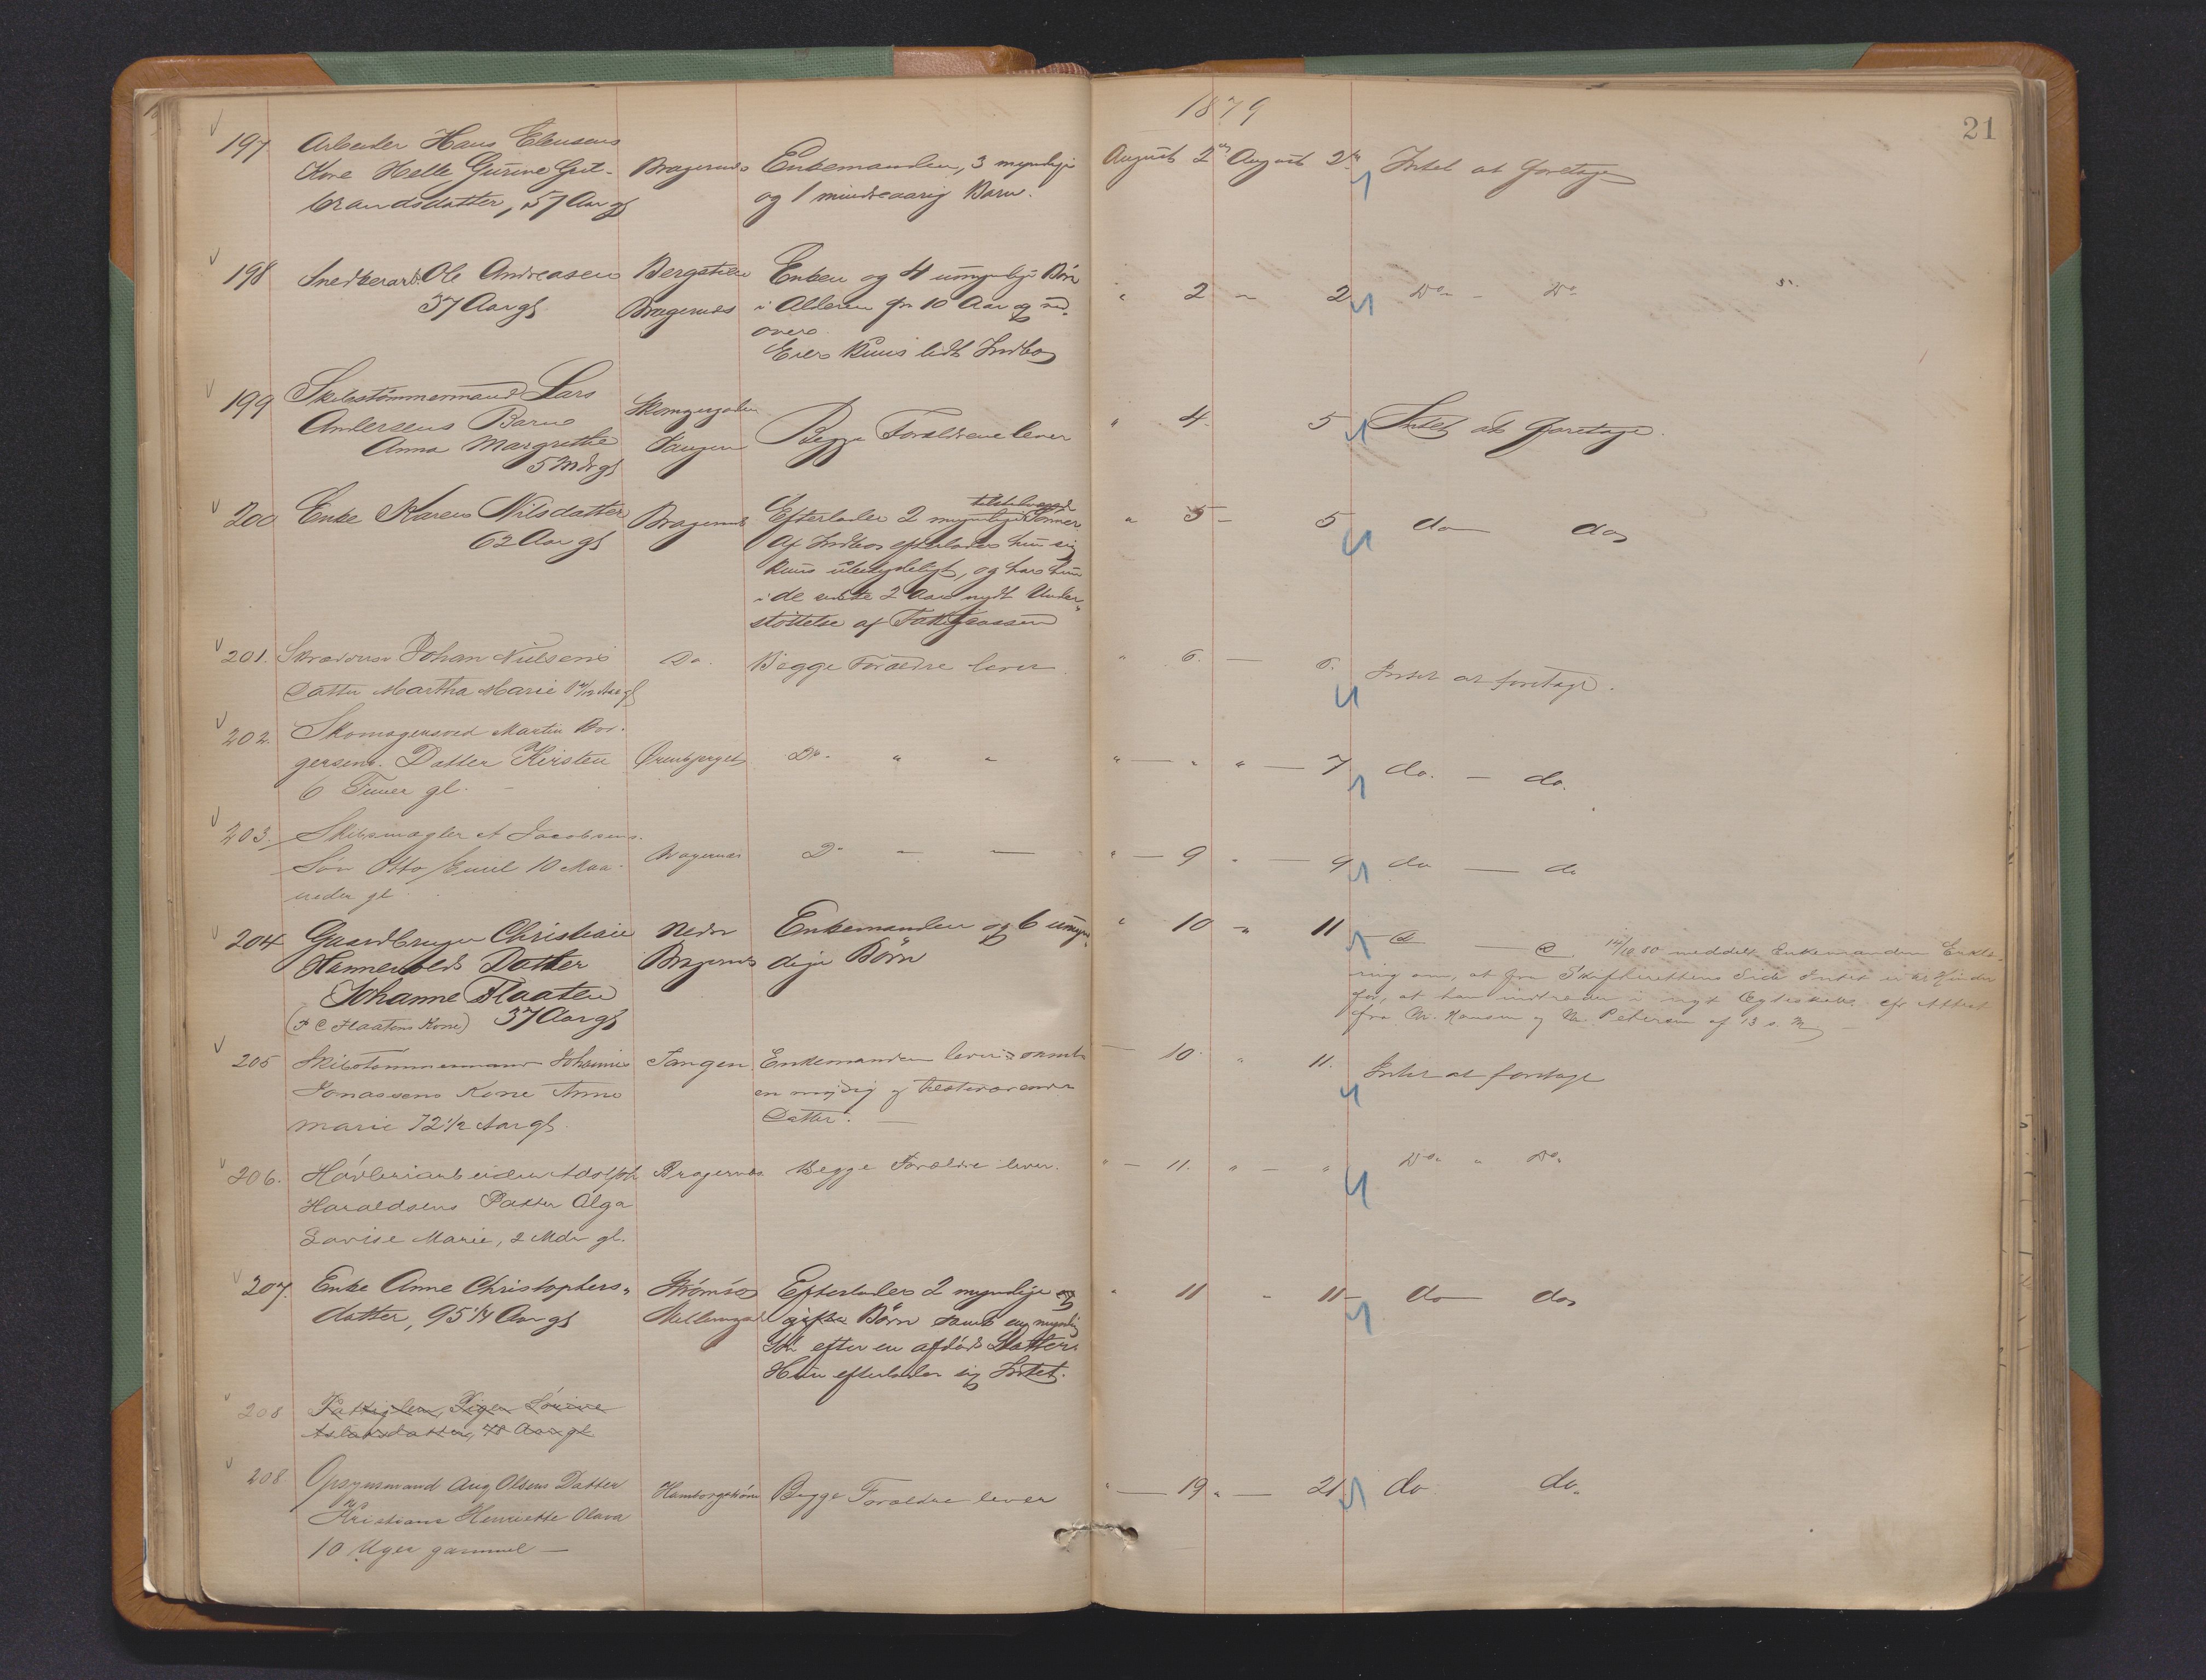 1879
21
197 Arbeider Hans Clausens
Kone Helle Gurine Gul- Bragernæs Enkemanden, 3 myndige August 2den August 2den Intet at foretage
brandsdatter, 57 Aar gl og 1 mindreaarig Barn.
198 Snedkerarb. Ole Andreasen Bergstien Enken og 4 umyndige Børn
37 Aar gl. Bragernæs i Alderen fra 10 Aar og ned- " 2 – 2 Do – Do
over.
Eier kuns lidt Indbo
199 Skibstømmermand Lars
Andersens Barn Tangen Begge Forældrene lever " 4. 5 Intet at foretage.
Anna Margrethe
5 Mdr gl
200 Enke Karen Nilsdatter Bragernæs Efterlader 2 myndige Sønner " 5 – 5 do do
62 Aar gl Af Indbo efterlader hun sig
kuns ubetydeligt, og har hun
i de sidste 2 Aar nydt Under-
støttelse af Fattigkassen
201. Johan Nielsens Do. Begge Forældre lever " 6. – 6. Intet at foretage.
Datter Martha Marie
202. Skomagersvend Martin Bor-
gersens Datter Kirsten Do. " " " – " " – 7 do. – do.
6 Timer gl. –
203. Skibsmægler A Jacobsens
Søn Otto Emil 10 Maa- Bragernæs Do – – " – 9 " – 9 do – do
neder gl.
204 Gaardbruger Christian Nedre Enkemanden og 6 umyn- " 10 " 11 d – d 14/10 80 meddelt Enkemanden Erklæ-
Hannevolds Datter Bragernæs dige Børn ring om, at fra Skifterettens Side Intet er til Hinder
Johanne Flaaten for, at han indtræder i nyt Ægteskab. efr Attest
(P C Flaatens Kone) 37 Aar gl fra M. Hansen og N. Petersen af 13 s. M –
205 Skibstømmermand Johannes Tangen Enkemanden lever samt – 10. " 11. Intet at foretage
Jonassens Kone Anne en myndig og tilstedeværende
Marie 72 1/2 Aar gl. Datter. –
206. Høvleriarbeider Adolph Bragernæs Begge Forældre lever. " – 11. " – " Do " Do
Haraldsens Datter Olga
Lovise Marie, 2 Mdr gl.
207. Enke Anne Christophers- Strømsø Efterlader 2 myndige og " 11 " 11 – do do
datter, 95 1/4 Aar gl gifte Børn samt en myndig
efter en afdød Datter.
Hun efterlader sig Intet.
208 Fattiglem, Pigen
208 Opsynsmand Aug Olsens Datter Begge Forældre lever " – 19 " – 21 do do.
Kristiane Henriette Olava
10 Uger gammel –